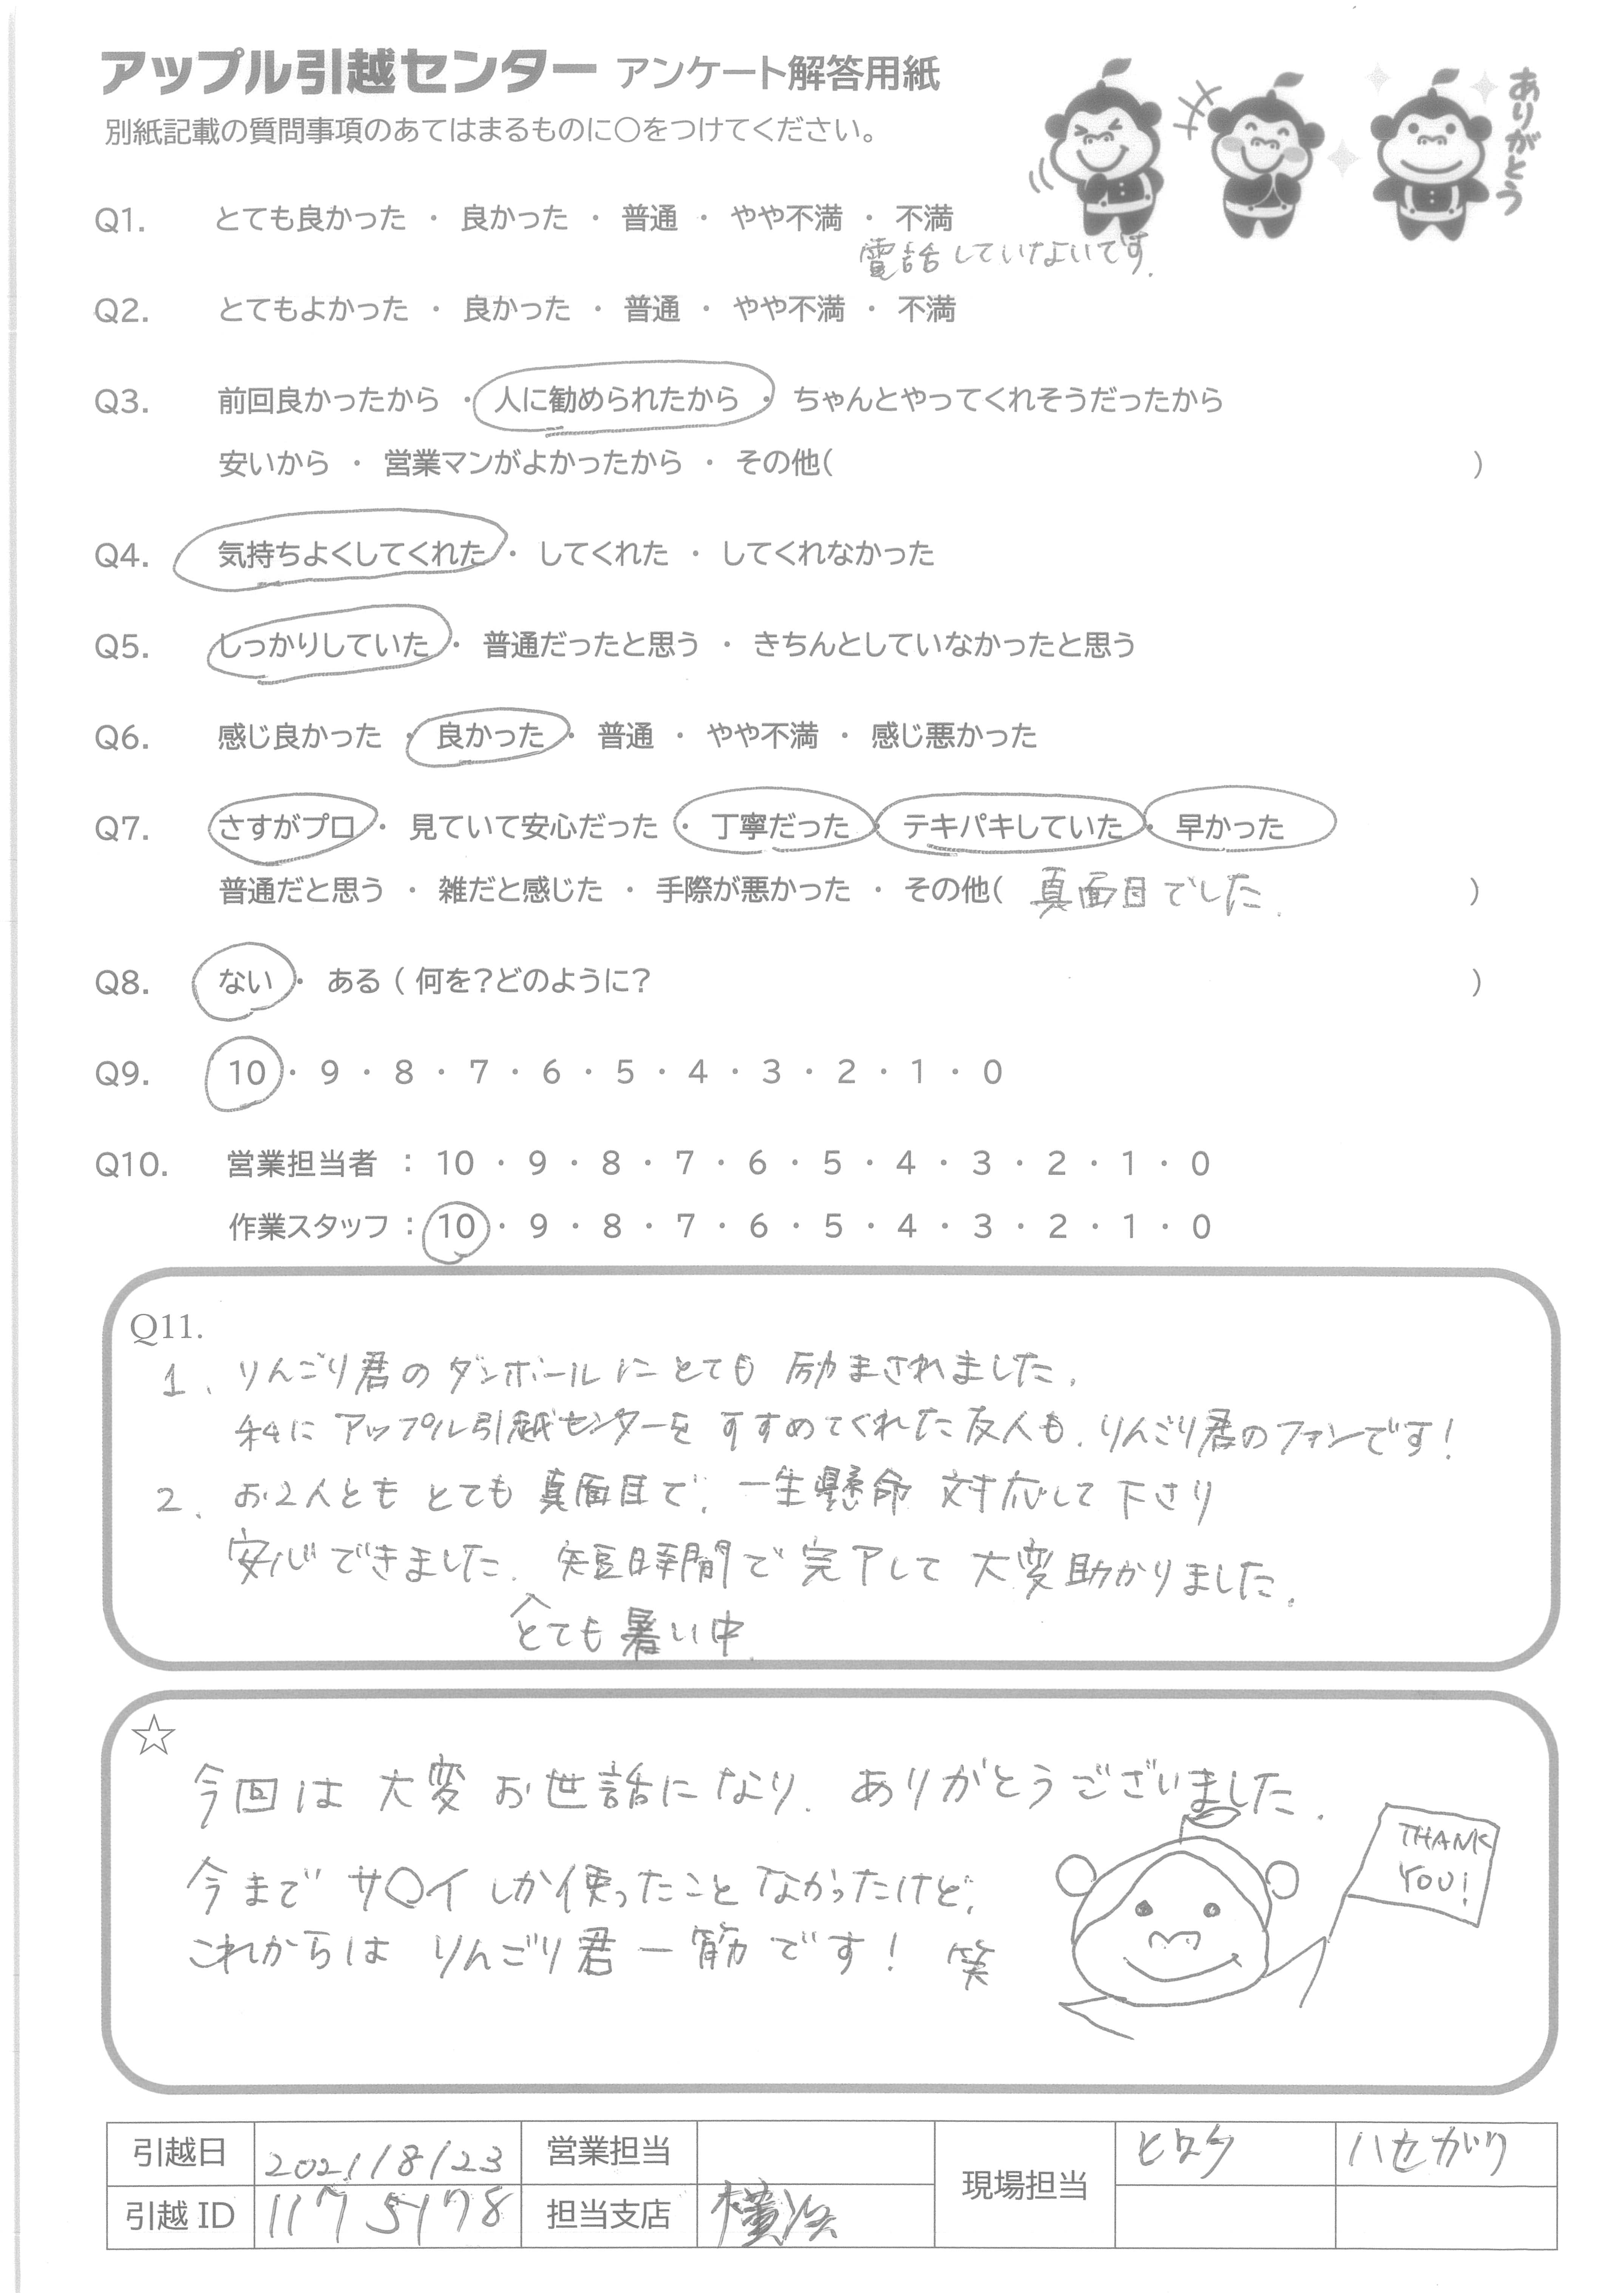 アップル引越センター アンケート解答用紙
別紙記載の質問事項のあてはまるものに○をつけてください。
ありがとう
Q1. とても良かった ・ 良かった ・ 普通 ・ やや不満 ・ 不満
電話していないです.
Q2. とてもよかった ・ 良かった ・ 普通 ・ やや不満 ・ 不満
Q3. 前回良かったから ・ 人に勧められたから ・ ちゃんとやってくれそうだったから
安いから ・ 営業マンがよかったから ・ その他( )
Q4. 気持ちよくしてくれた ・ してくれた ・ してくれなかった
Q5. しっかりしていた ・ 普通だったと思う ・ きちんとしていなかったと思う
Q6. 感じ良かった ・ 良かった ・ 普通 ・ やや不満 ・ 感じ悪かった
Q7. さすがプロ ・ 見ていて安心だった ・ 丁寧だった ・ テキパキしていた ・ 早かった
普通だと思う ・ 雑だと感じた ・ 手際が悪かった ・ その他( 真面目でした. )
Q8. ない ・ ある ( 何を?どのように? )
Q9. 10 ・ 9 ・ 8 ・ 7 ・ 6 ・ 5 ・ 4 ・ 3 ・ 2 ・ 1 ・ 0
Q10. 営業担当者 : 10 ・ 9 ・ 8 ・ 7 ・ 6 ・ 5 ・ 4 ・ 3 ・ 2 ・ 1 ・ 0
作業スタッフ : 10 ・ 9 ・ 8 ・ 7 ・ 6 ・ 5 ・ 4 ・ 3 ・ 2 ・ 1 ・ 0
Q11.
1. りんごり君のダンボールにとても励まされました.
私にアップル引越センターをすすめてくれた友人も、りんごり君のファンです!
2. お2人ともとても真面目で、一生懸命対応して下さり
安心できました. 短時間で完了して大変助かりました.
とても暑い中
☆
今回は大変お世話になり、ありがとうございました.
今までサ○イしか使ったことなかったけど、
これからはりんごり君一筋です! 笑
THANK
YOU!
引越日 2021/8/23 営業担当 現場担当 ヒロタ ハセガワ
引越 ID 1175178 担当支店 横浜